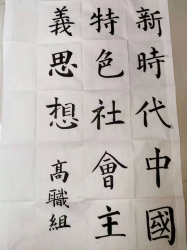 新時代中國
特色社會主
義思想
高職組